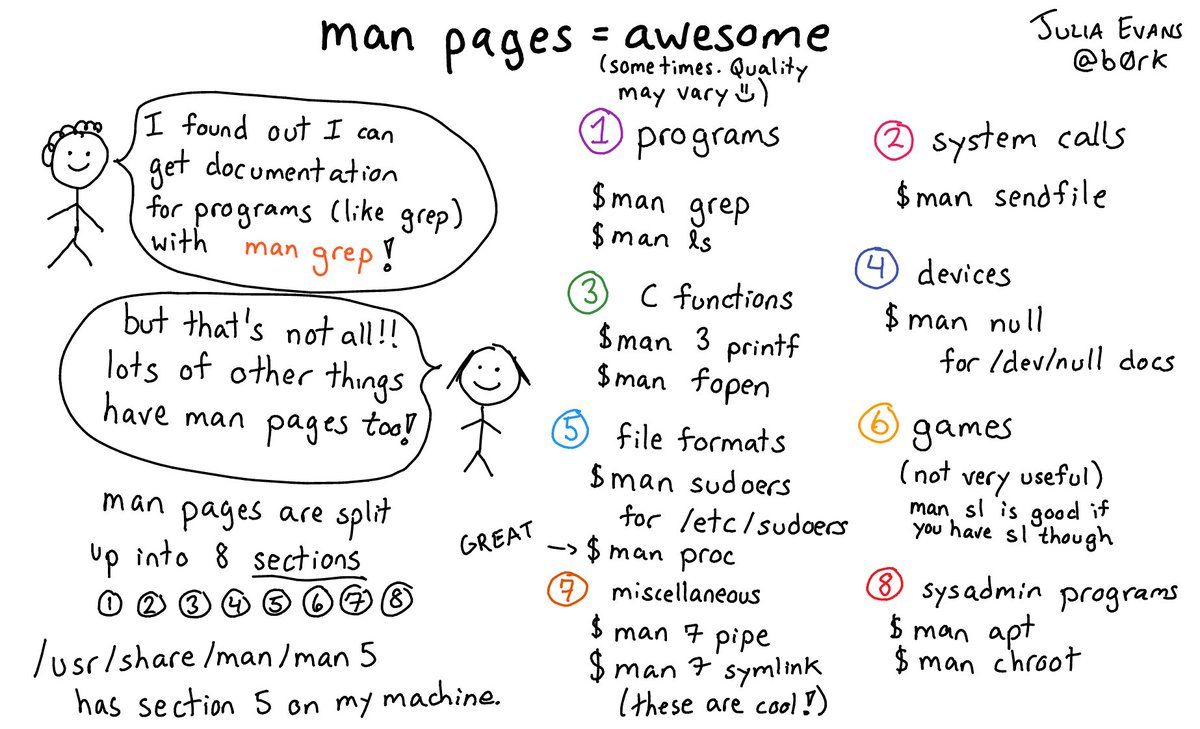 man pages = awesome
(sometimes. Quality
may vary)
JULIA EVANS
@b0rk
I found out I can
get documentation
for programs (like grep)
with man grep!
but that's not all!!
lots of other things
have man pages too!
man pages are split
up into 8 sections
① ② ③ ④ ⑤ ⑥ ⑦ ⑧
/usr/share/man/man5
has section 5 on my machine.
① programs
$ man grep
$ man ls
② system calls
$ man sendfile
③ C functions
$ man 3 printf
$ man fopen
④ devices
$ man null
for /dev/null docs
⑤ file formats
$ man sudoers
for /etc/sudoers
GREAT -> $ man proc
⑥ games
(not very useful)
man sl is good if
you have sl though
⑦ miscellaneous
$ man 7 pipe
$ man 7 symlink
(these are cool!)
⑧ sysadmin programs
$ man apt
$ man chroot